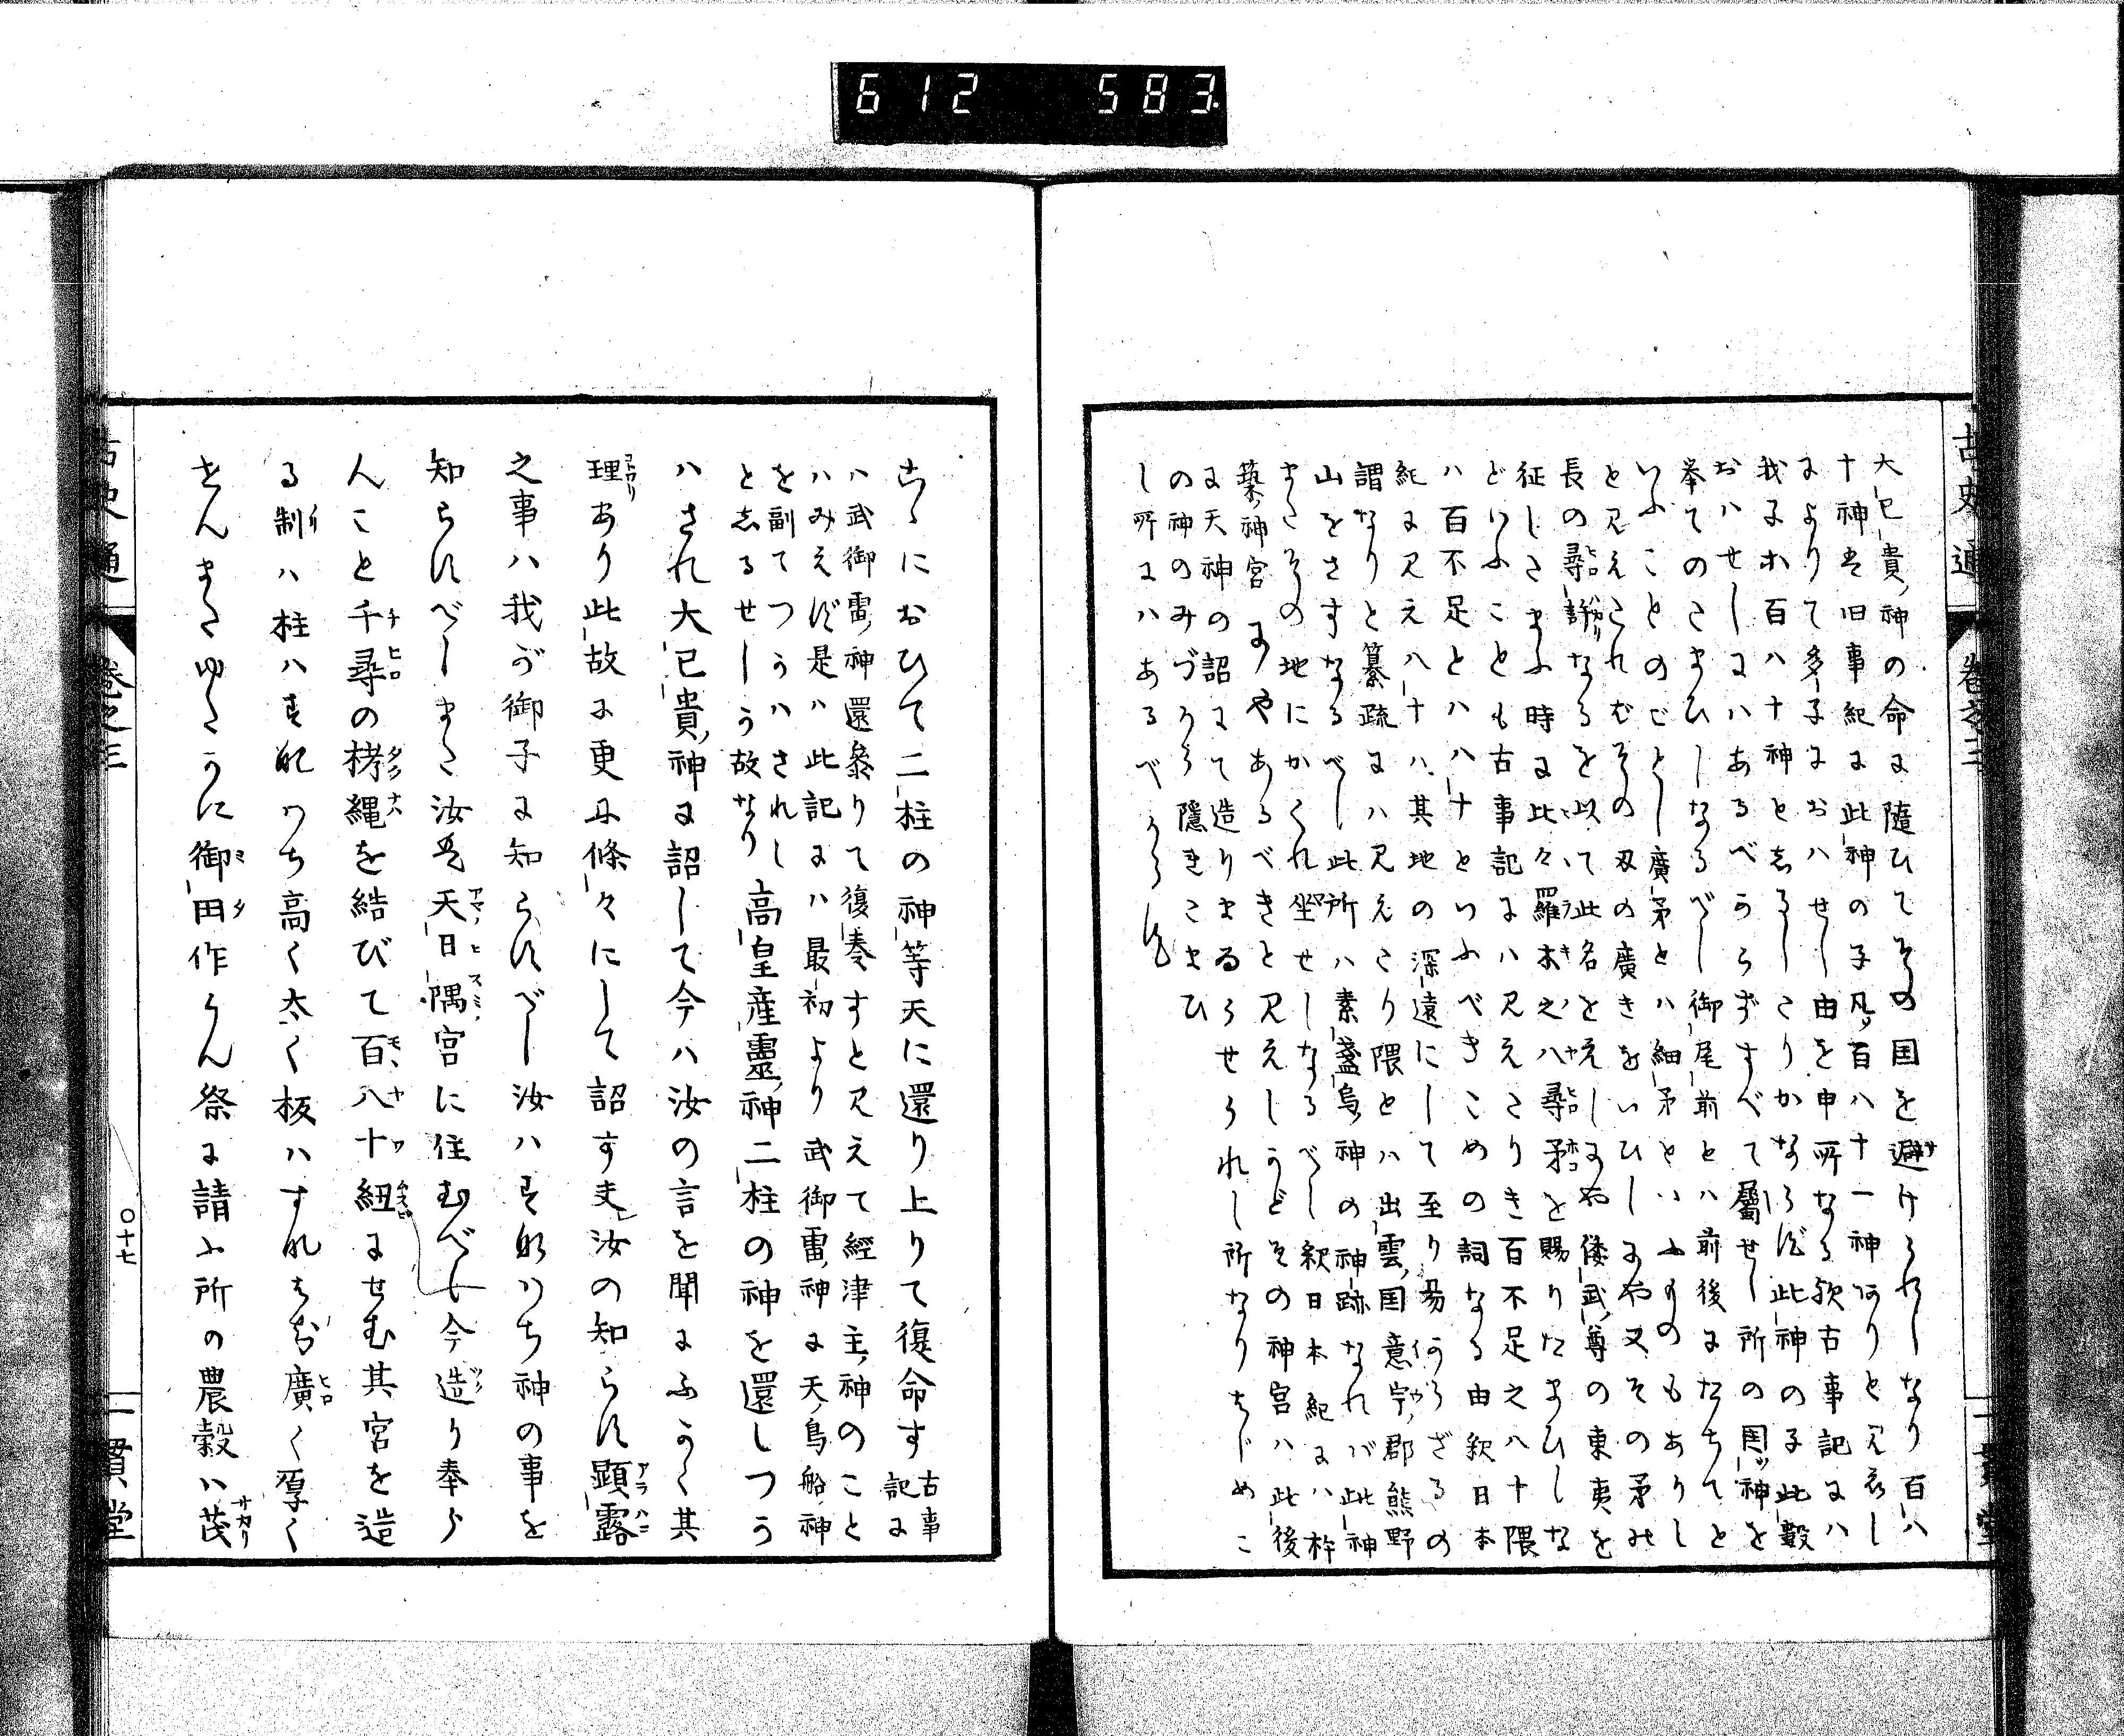 612 583
古史通 巻之三
大已貴神の命に随ひてその国を避けられしなり百八
十神は旧事紀に此神の子凡百八十一神ありと見えし
によりて多子におハせし由を申所なる歟古事記にハ
我子百八十神としるしたりかならず此神の子此数
おハせしにハあるべからずすべて属せし所の国神を
挙てのたまひしなるべし御尾前とハ前後にたちてと
いふことのごとし廣矛とハ細矛といふものもありし
と見えたれむその刃の廣きをいひしにや又その矛の
長の尋許なるを以て此名を得しにや倭武尊の東夷を
征したまふ時に比々羅木之八尋矛を賜りたまひしな
どいふことも古事記にハ見えたりき百不足之八十隈
ハ百不足とハ八十といふべきこめの詞なる由釈日本
紀に見え八十ハ其地の深遠にして至り易からざるの
謂なりと纂疏にハ見えたり隈とハ出雲国意宇郡熊野
山をさすなるべし此所ハ素盞烏神の神跡なれバ此神
またその地にかくれ坐せしなるべし釈日本紀にハ杵
築神宮にやあるべきと見えしかどその神宮ハ此後
に天神の詔にて造りまゐらせられし所なりはじめこ
の神のみづから隠きたまひ
し所にハあるべからず
こゝにおひて二柱の神等天に還り上りて復命す 古事
記に
ハ武御雷神還参りて復奏すと見えて経津主神のこと
ハみえず是ハ此記にハ最初より武御雷神に天鳥船神
を副てつかハされし
としるせしう故なり 高皇産霊神二柱の神を還しつか
ハされ大已貴神に詔して今ハ汝の言を聞にふかく其
理あり此故に更に條々にして詔す夫汝の知らす顕露
之事ハ我が御子に知らすべし汝ハすなハち神の事を
知らすべしまた汝は天日隅宮に住むべし今造り奉ら
んこと千尋の栲縄を結びて百八十紐にせむ其宮を造
る制ハ柱ハすなハち高く太く板ハすなはち廣く厚く
せんまたゆくかに御田作らん祭に請ふ所の農穀ハ茂
古史通 巻之三 〇十七 一貫堂